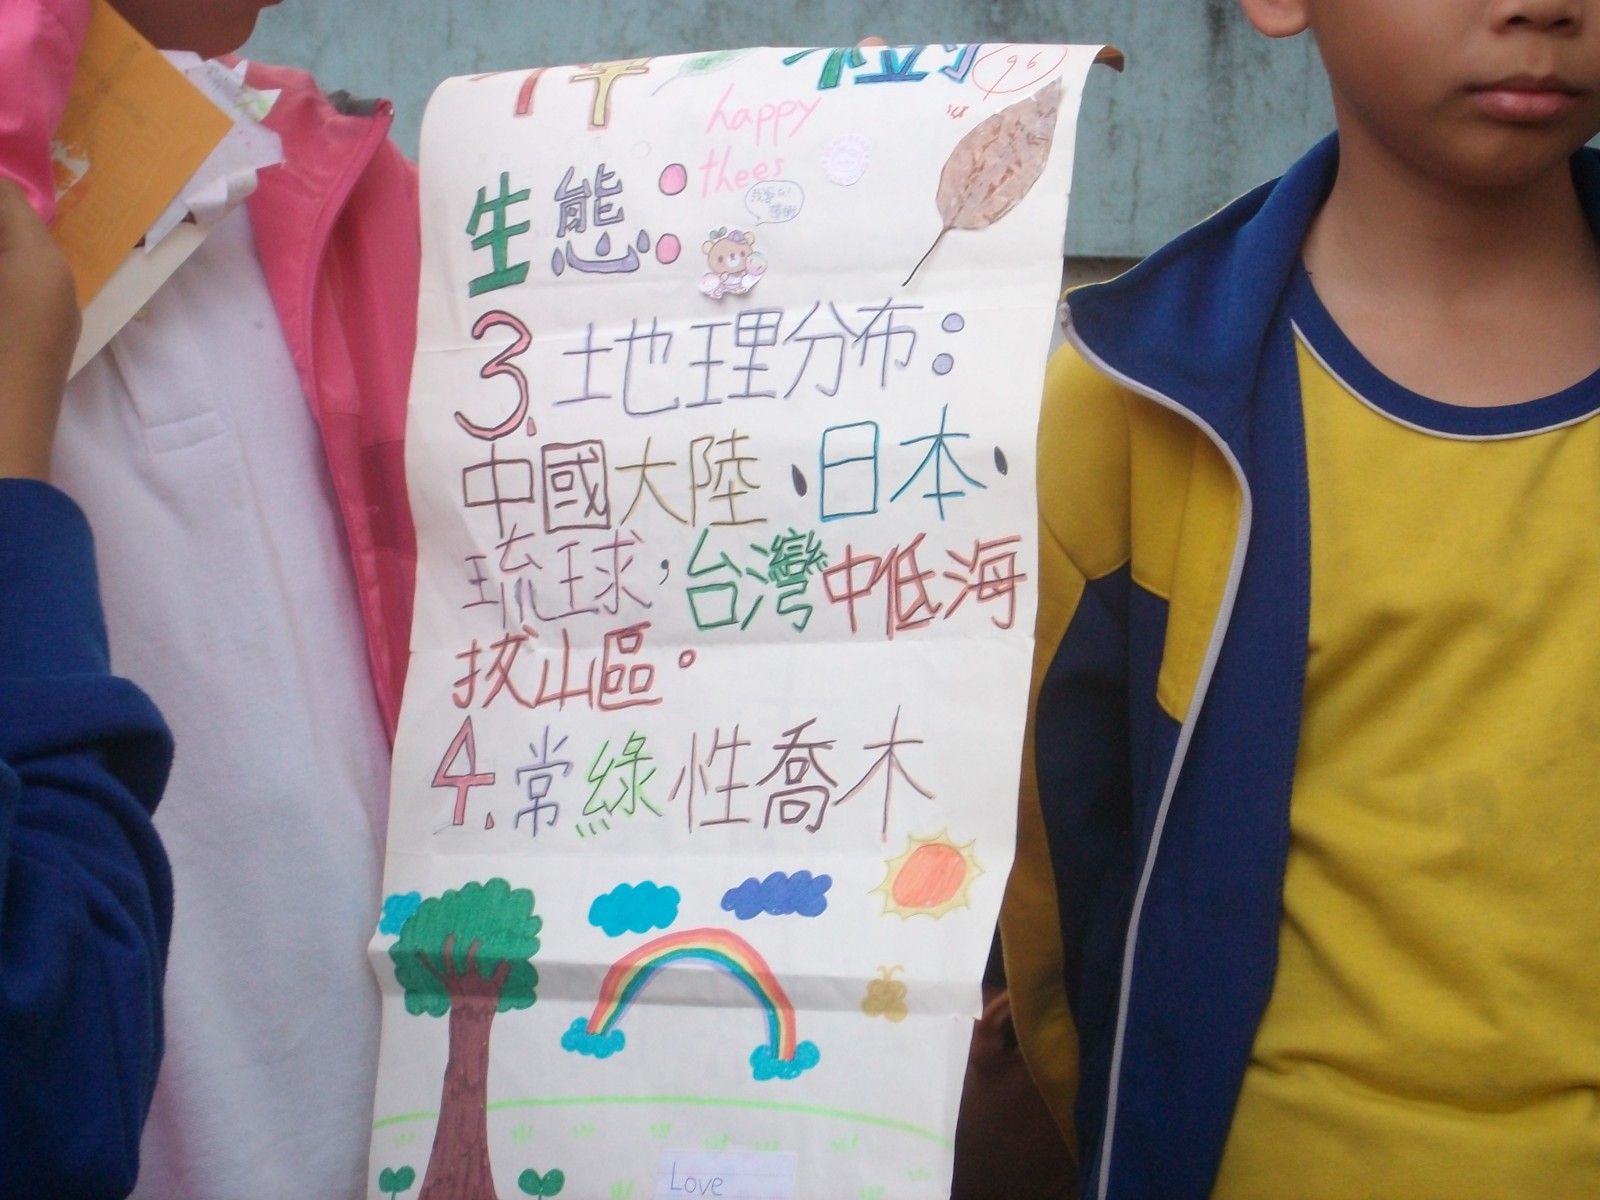 樹
96
happy
thees
生態:
3.地理分布:
中國大陸、日本、
琉球,台灣中低海
拔山區。
4.常綠性喬木
Love